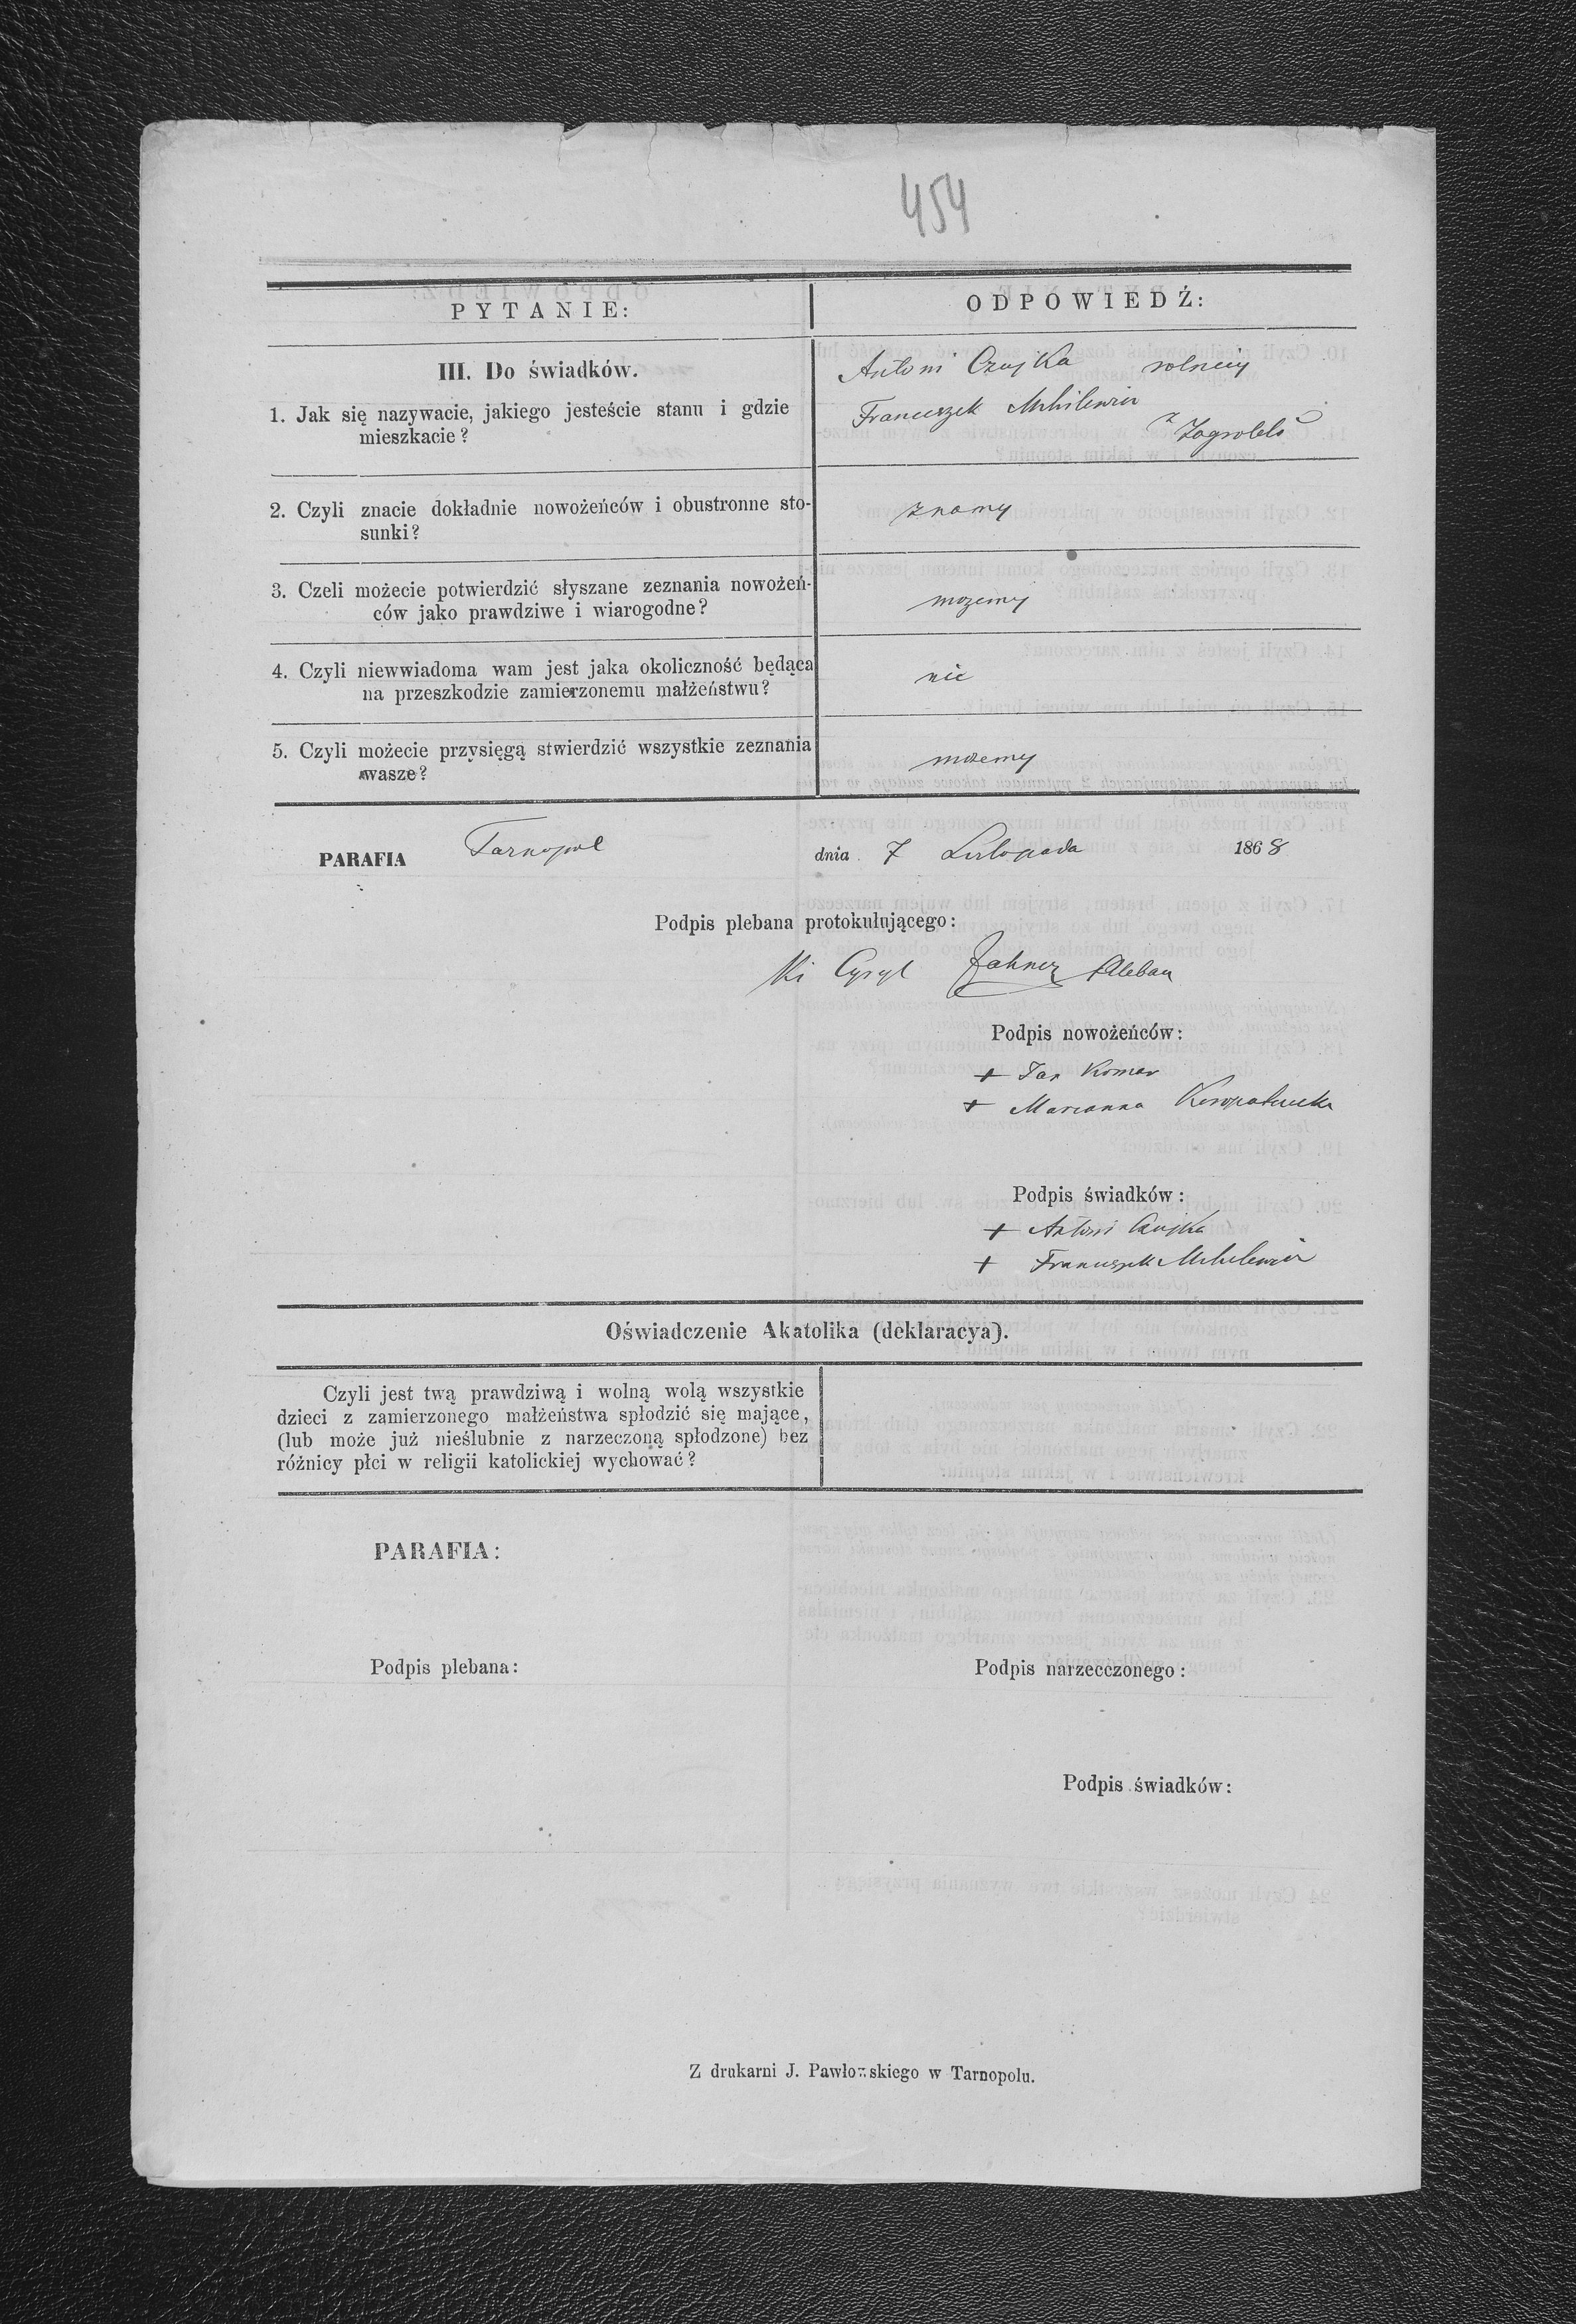 454
PYTANIE:
ODPOWIEDŹ:
III. Do świadków.
1. Jak się nazywacie, jakiego jesteście stanu i gdzie
mieszkacie?
Antoni Czujka rolnicy
Franciszek
z
2. Czyli znacie dokładnie nowożeńców i obustronne sto-
sunki?
znamy
3. Czeli możecie potwierdzić słyszane zeznania nowożeń-
ców jako prawdziwe i wiarogodne?
mozemy
4. Czyli niewwiadoma wam jest jaka okoliczność będąca
na przeszkodzie zamierzonemu małżeństwu?
nie
5. Czyli możecie przysięgą stwierdzić wszystkie zeznania
wasze?
możemy
PARAFIA Tarnopol dnia 7 Listopada 1868
Podpis plebana protokułującego:
Cyryl Pleban
Podpis nowożeńców:
+ Jan Komar
+ Marianna
Podpis świadków:
+ Antoni Czujka
+ Franciszek
Oświadczenie Akatolika (deklaracya).
Czyli jest twą prawdziwą i wolną wolą wszystkie
dzieci z zamierzonego małżeństwa spłodzić się mające,
(lub może już nieślubnie z narzeczoną spłodzone) bez
różnicy płci w religii katolickiej wychować?
PARAFIA:
Podpis plebana:
Podpis narzecczonego:
Podpis świadków:
Z drukarni J. Pawłowskiego w Tarnopolu.